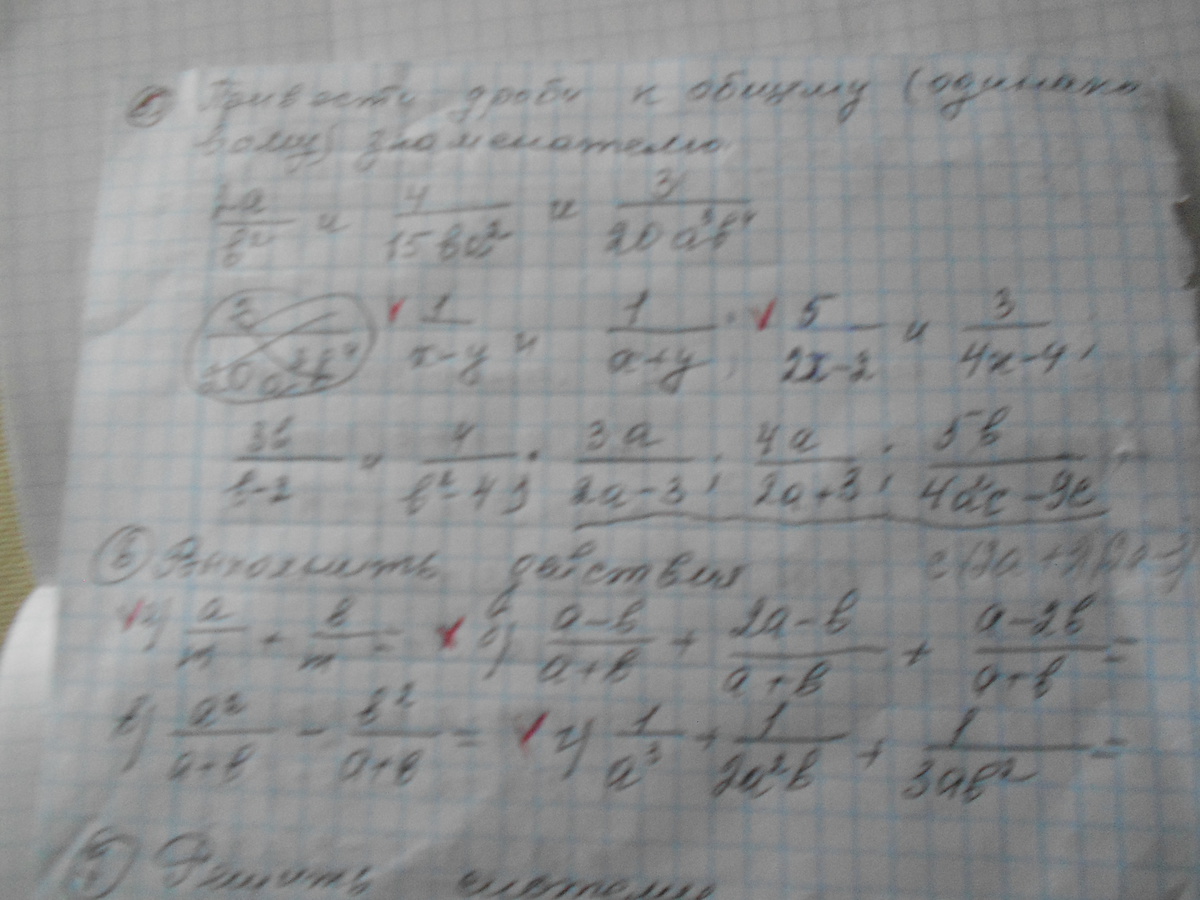 5) Привести дроби к общему (одинако
вому) знаменателю.
2a/b² и 4/15ba² и 3/20a³b⁴
1/x-y и 1/x+y; 5/2x-2 и 3/4x-4;
3b/b-2 и 4/b²-4; 3a/2a-3; 4a/2a+3; 5b/4a²c-9c
6) Выполнить действия
a) a/m + b/m = б) a-b/a+b + 2a-b/a+b + a-2b/a+b =
в) a²/a+b - b²/a+b = г) 1/a³ + 1/2a²b + 1/3ab² =
7) Решить систему